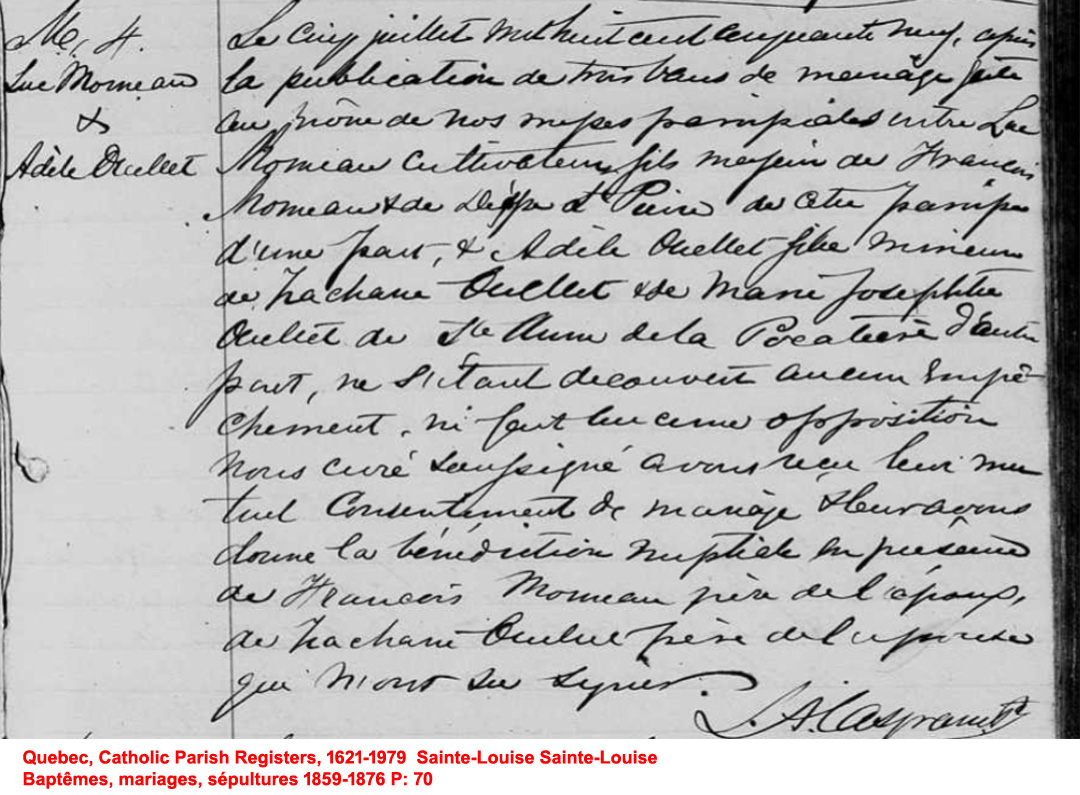 M. 4.
Luc Morneau
&
Adèle Ouellet
Le cinq juillet mil huit cent cinquante neuf, après
la publication de trois bans de mariage faite
au prône de nos messes paroissiales entre Luc
Morneau cultivateur, fils majeur de François
Morneau & de St Pierre de cette paroisse
d'une part, & Adèle Ouellet fille mineure
de Zacharie Ouellet & de Marie Josephte
Ouellet de Ste Anne de la Pocatière d'autre
part, ne s'étant découvert aucun empê-
chement, ni fait aucune opposition
nous curé soussigné avons reçu leur mu
tuel consentement de mariage & leur avons
donné la bénédiction nuptiale en présence
de François Morneau père de l'époux,
de Zacharie Ouellet père de l'épouse
qui n'ont su signer.
Quebec, Catholic Parish Registers, 1621-1979 Sainte-Louise Sainte-Louise
Baptêmes, mariages, sépultures 1859-1876 P: 70